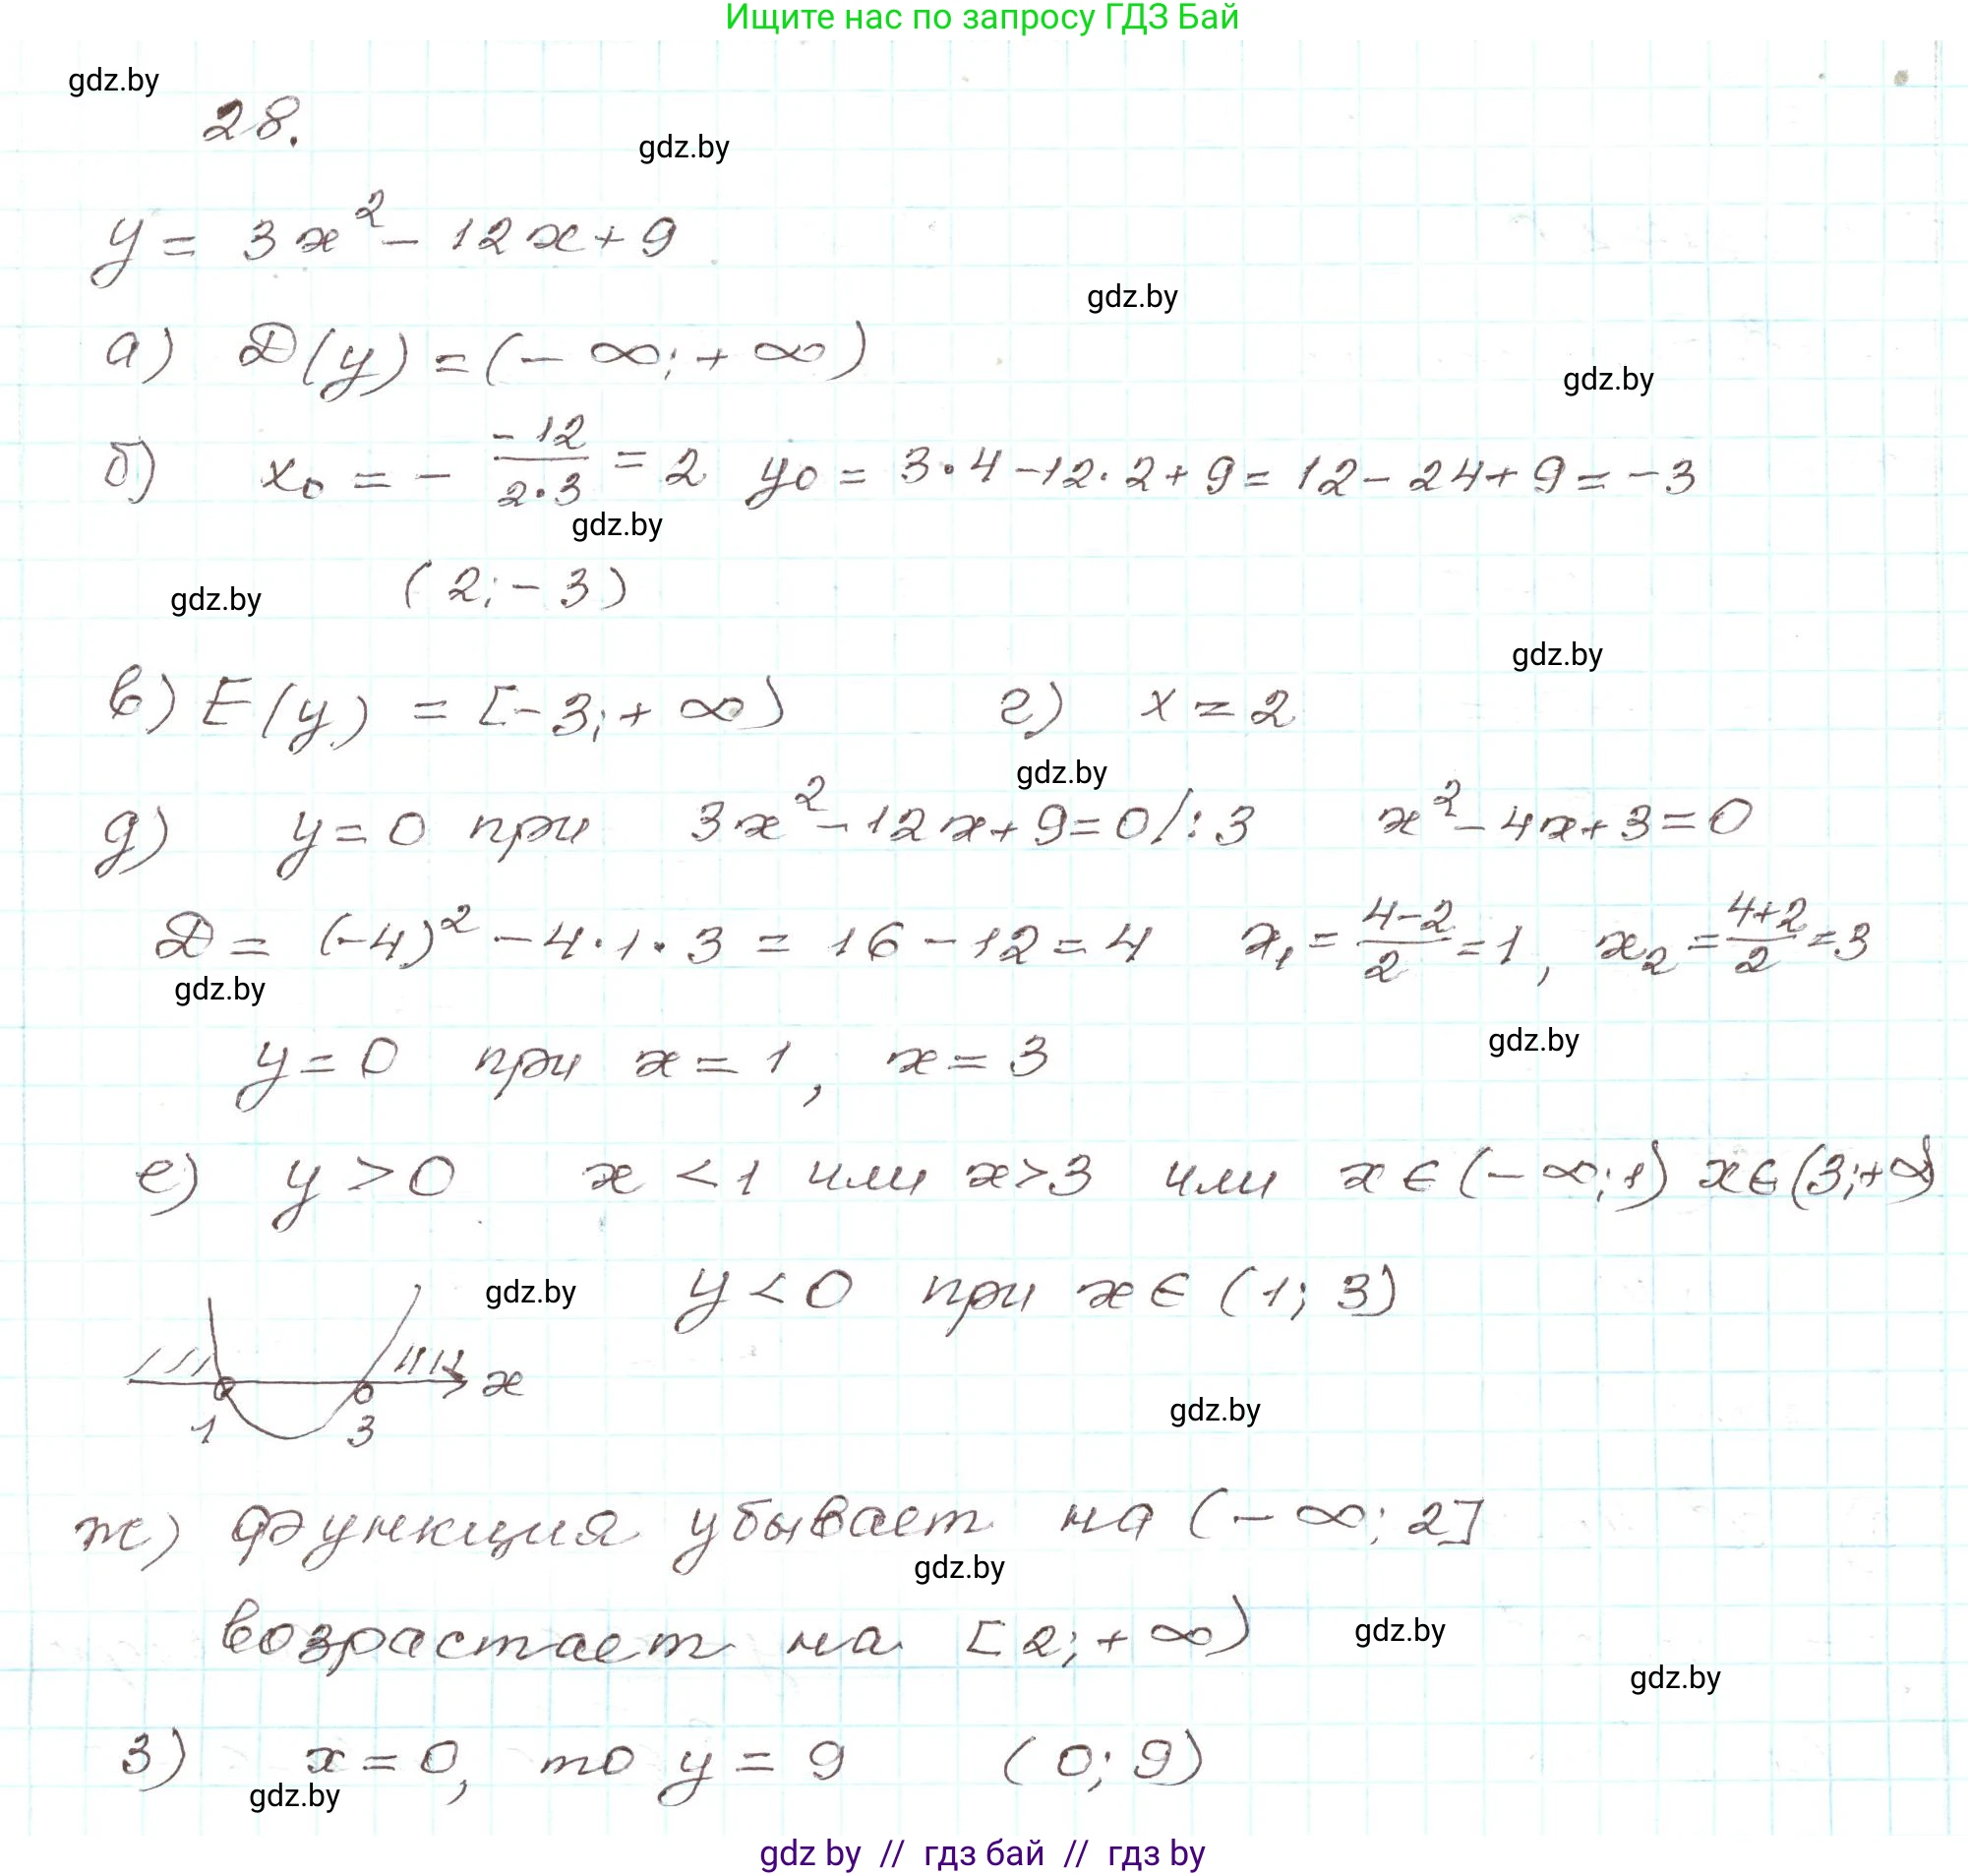 Ищите нас по запросу ГДЗ Бай
gdz.by
28.
gdz.by
y = 3x² - 12x + 9
gdz.by
а) D(y) = (- ∞; + ∞)
gdz.by
б) x₀ = - -12/2·3 = 2 y₀ = 3·4 - 12·2 + 9 = 12 - 24 + 9 = -3
gdz.by
(2; - 3)
gdz.by
gdz.by
в) E(y) = [-3; + ∞) г) x = 2
gdz.by
д) y = 0 при 3x² - 12x + 9 = 0 /: 3 x² - 4x + 3 = 0
D = (-4)² - 4·1·3 = 16 - 12 = 4 x₁ = 4-2/2 = 1, x₂ = 4+2/2 = 3
gdz.by
gdz.by
y = 0 при x = 1, x = 3
е) y > 0 x < 1 или x > 3 или x ∈ (- ∞; 1) x ∈ (3; + ∞)
gdz.by
y < 0 при x ∈ (1; 3)
x
1 3
gdz.by
ж) функция убывает на (- ∞; 2]
gdz.by
возрастает на [2; + ∞)
gdz.by
gdz.by
з) x = 0, то y = 9 (0; 9)
gdz.by
gdz by // гдз бай // гдз by